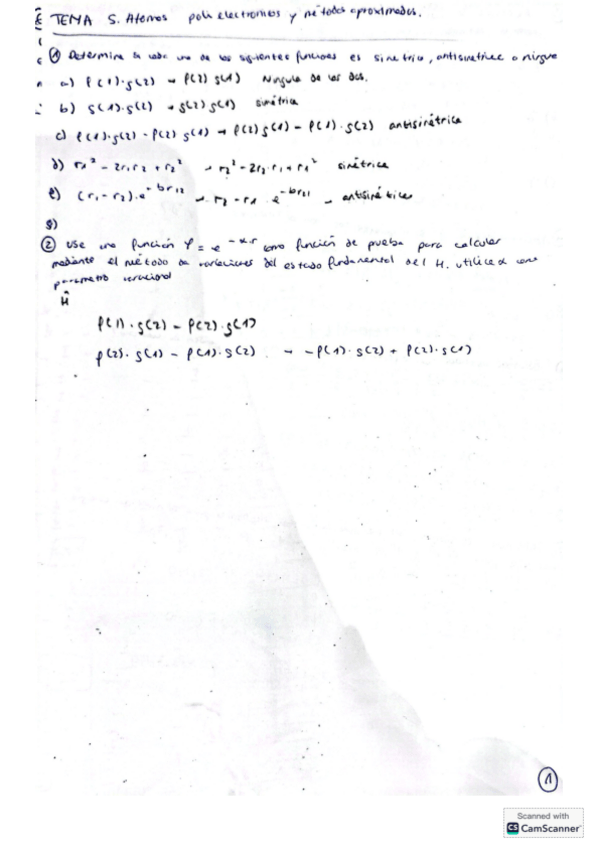 TEMA 5. Atomos poli electronicos y métodos aproximados.
① Determine si cada una de las siguientes funciones es simetrica, antisimetrica o ninguna
a) f(1)·g(2) → f(2) g(1) Ninguna de las dos.
b) g(1)·g(2) → g(2) g(1) simétrica
c) f(1)·g(2) - f(2) g(1) → f(2) g(1) - f(1)·g(2) antisimétrica
d) r₁² - 2r₁r₂ + r₂² → r₂² - 2r₂·r₁ + r₁² simétrica
e) (r₁ - r₂)·e^-br₁₂ → r₂ - r₁ · e^-br₂₁ → antisimétrica
g)
② Use una función Ψ = e^-α·r como función de prueba para calcular
mediante el método de variaciones del estado fundamental del H. utilice α como
parametro variacional
Ĥ
f(1)·g(2) - f(2)·g(1)
f(2)·g(1) - f(1)·g(2) → -f(1)·g(2) + f(2)·g(1)
1
Scanned with
CS CamScanner